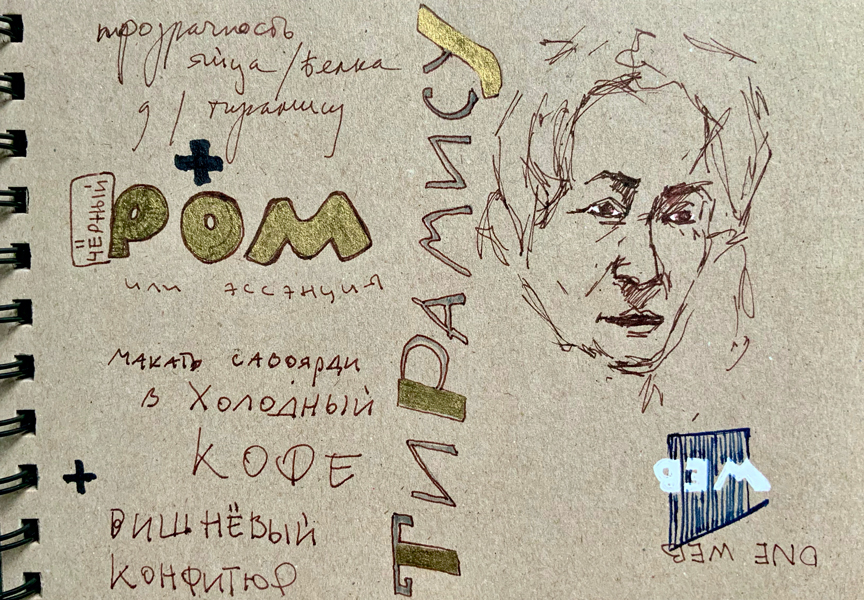 прозрачность
яйца / белка
д / тирамису
+
ЧЁРНЫЙ
РОМ
или эссэнция
МАКАТЬ САВОЯРДИ
В ХОЛОДНЫЙ
КОФЕ
+
ВИШНЁВЫЙ
КОНФИТЮР
ТИРАМИСУ
WEB
DNE WEB